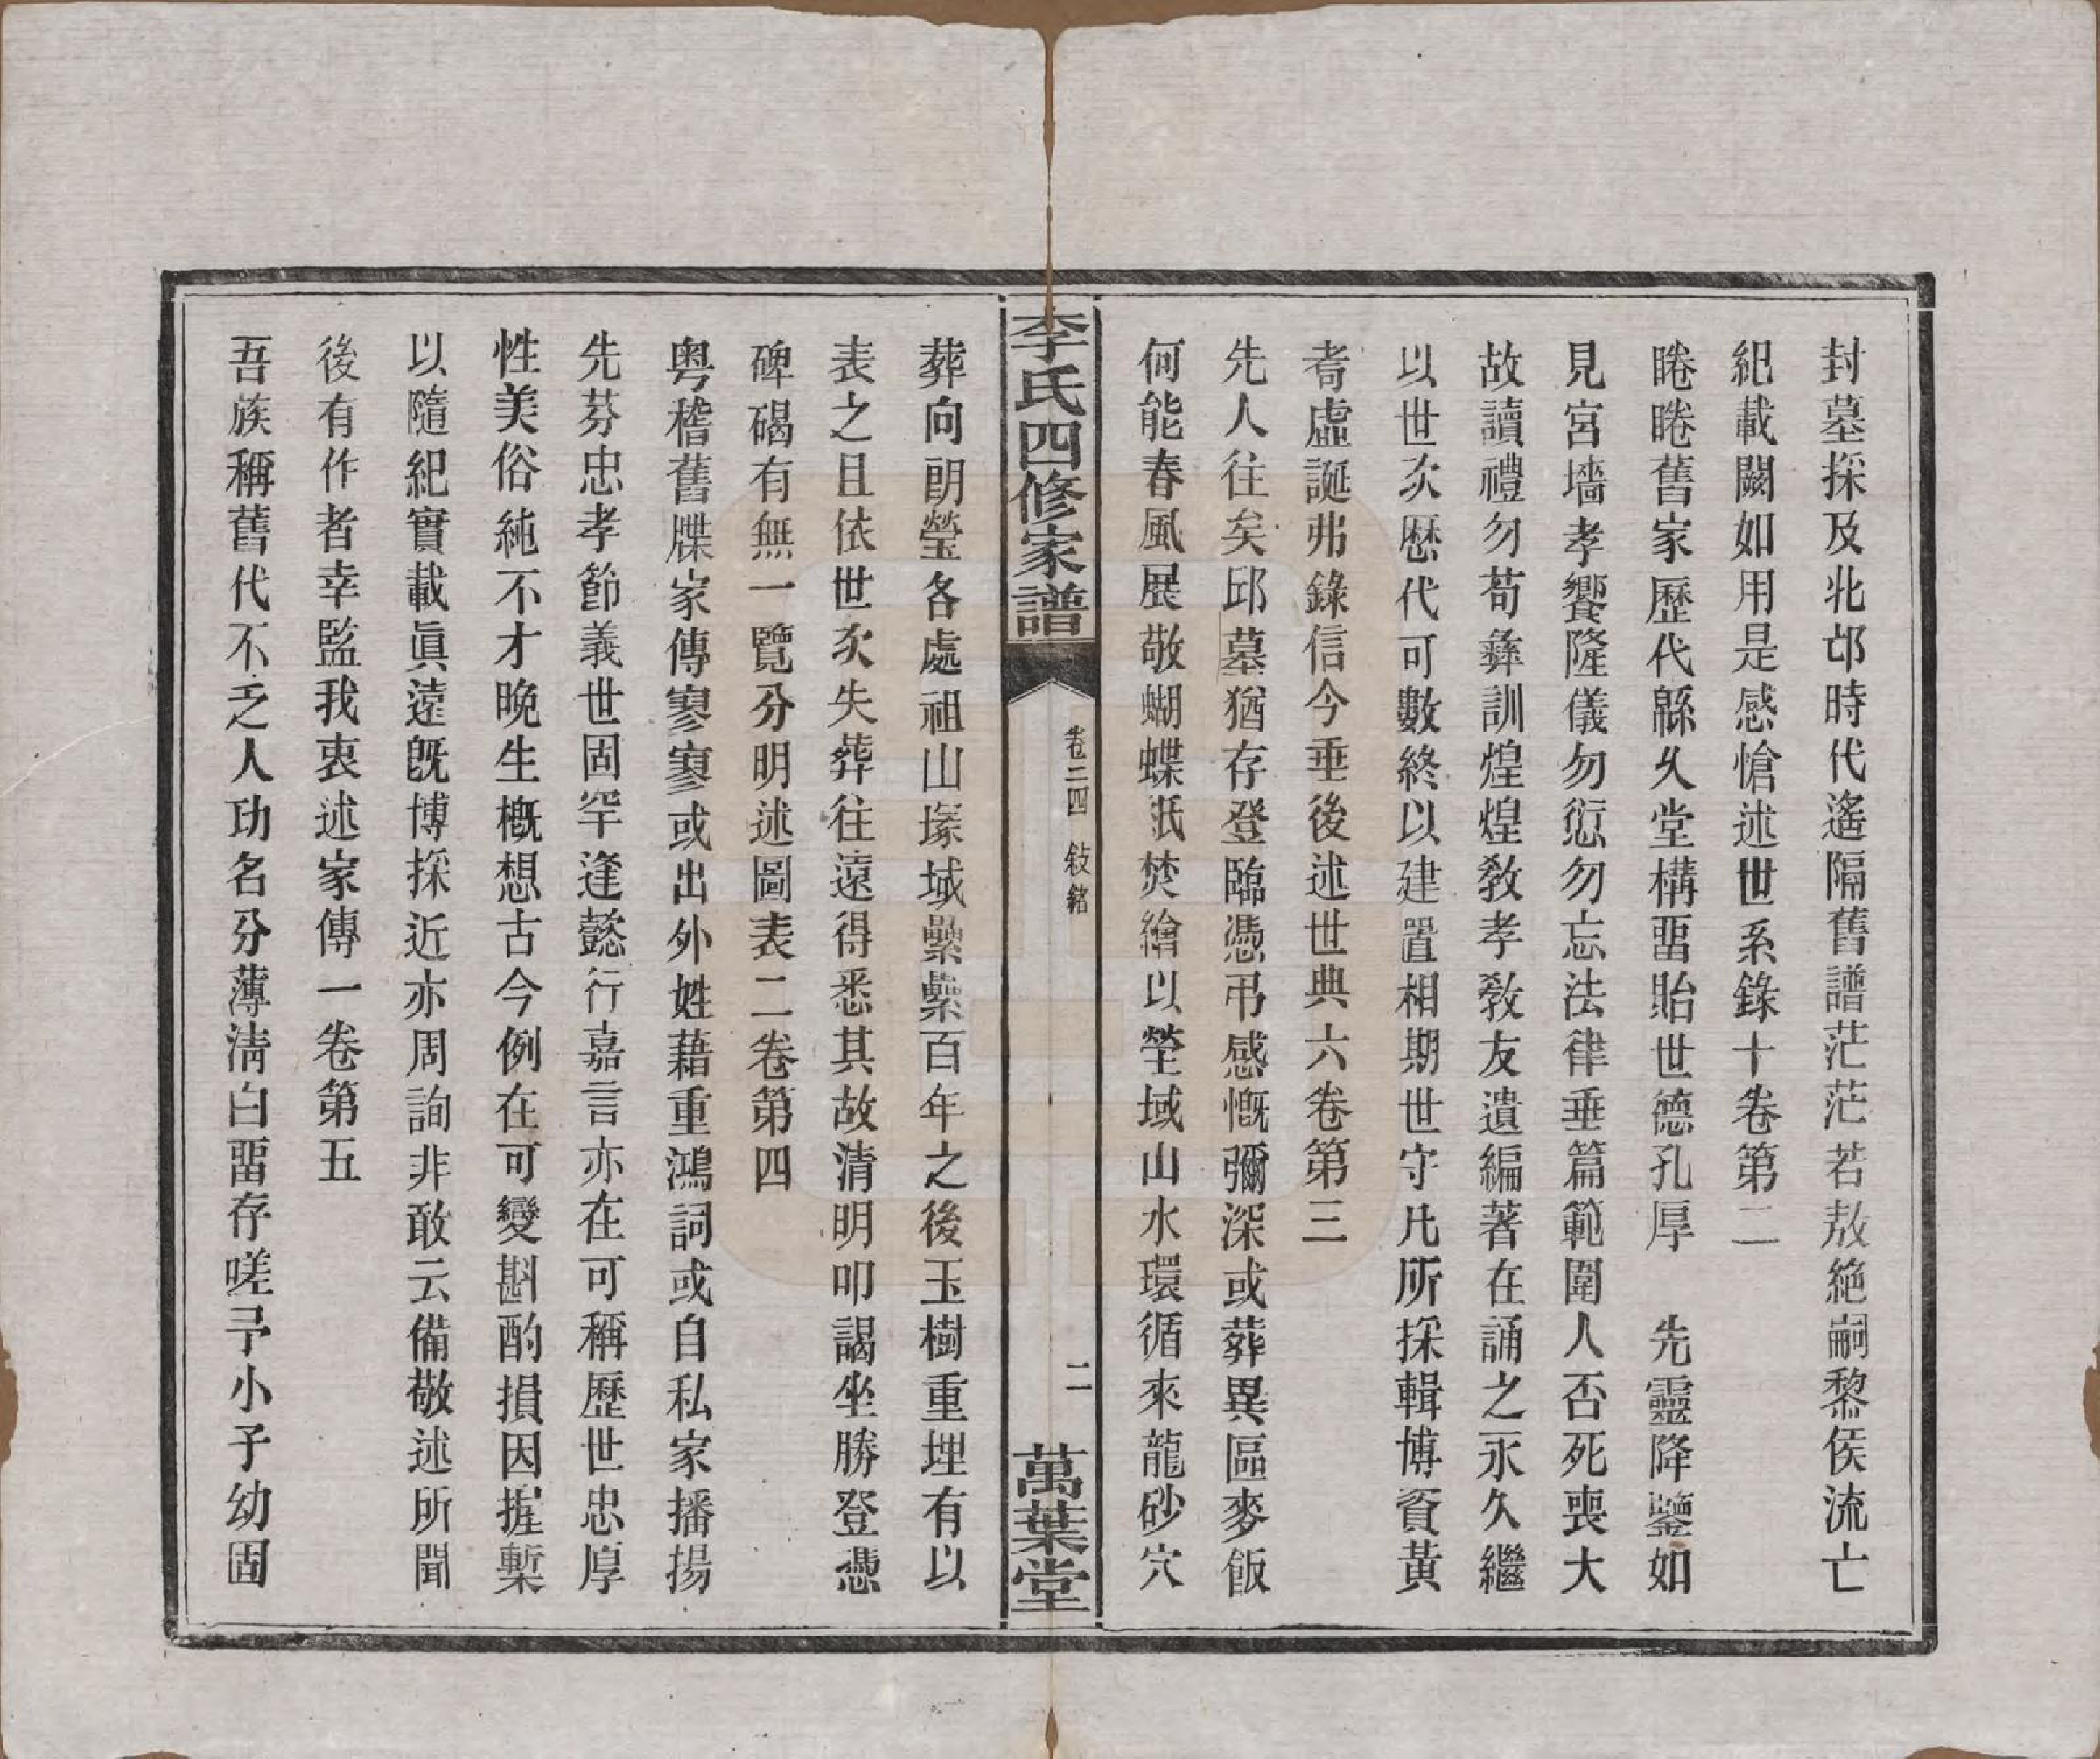 封墓採及北邙時代遙隔舊譜茫茫若敖絶嗣黎侯流亡
紀載闕如用是感愴述世系錄十卷第二
睠睠舊家歷代緜久堂構畱貽世德孔厚　先靈降鑒如
見宮墻孝饗隆儀勿愆勿忘法律垂篇範圍人否死喪大
故讀禮勿苟彝訓煌煌敎孝敎友遺編著在誦之永久繼
以世次歷代可數終以建置相期世守凡所採輯博資黃
耇虛誕弗錄信今垂後述世典六卷第三
先人往矣邱墓猶存登臨憑弔感慨彌深或葬異區麥飯
何能春風展敬蝴蝶紙焚繪以塋域山水環循來龍砂穴
李氏四修家譜
卷二四　敍銘
二
萬葉堂
葬向朗瑩各處祖山塜域纍纍百年之後玉樹重埋有以
表之且依世次失葬往遠得悉其故清明叩謁坐勝登憑
碑碣有無一覽分明述圖表二卷第四
粤稽舊牒家傳寥寥或出外姓藉重鴻詞或自私家播揚
先芬忠孝節義世固罕逢懿行嘉言亦在可稱歷世忠厚
性美俗純不才晚生槪想古今例在可變斟酌損因握槧
以隨紀實載眞遠旣博採近亦周詢非敢云備敬述所聞
後有作者幸監我衷述家傳一卷第五
吾族稱舊代不乏人功名分薄淸白畱存嗟予小子幼固